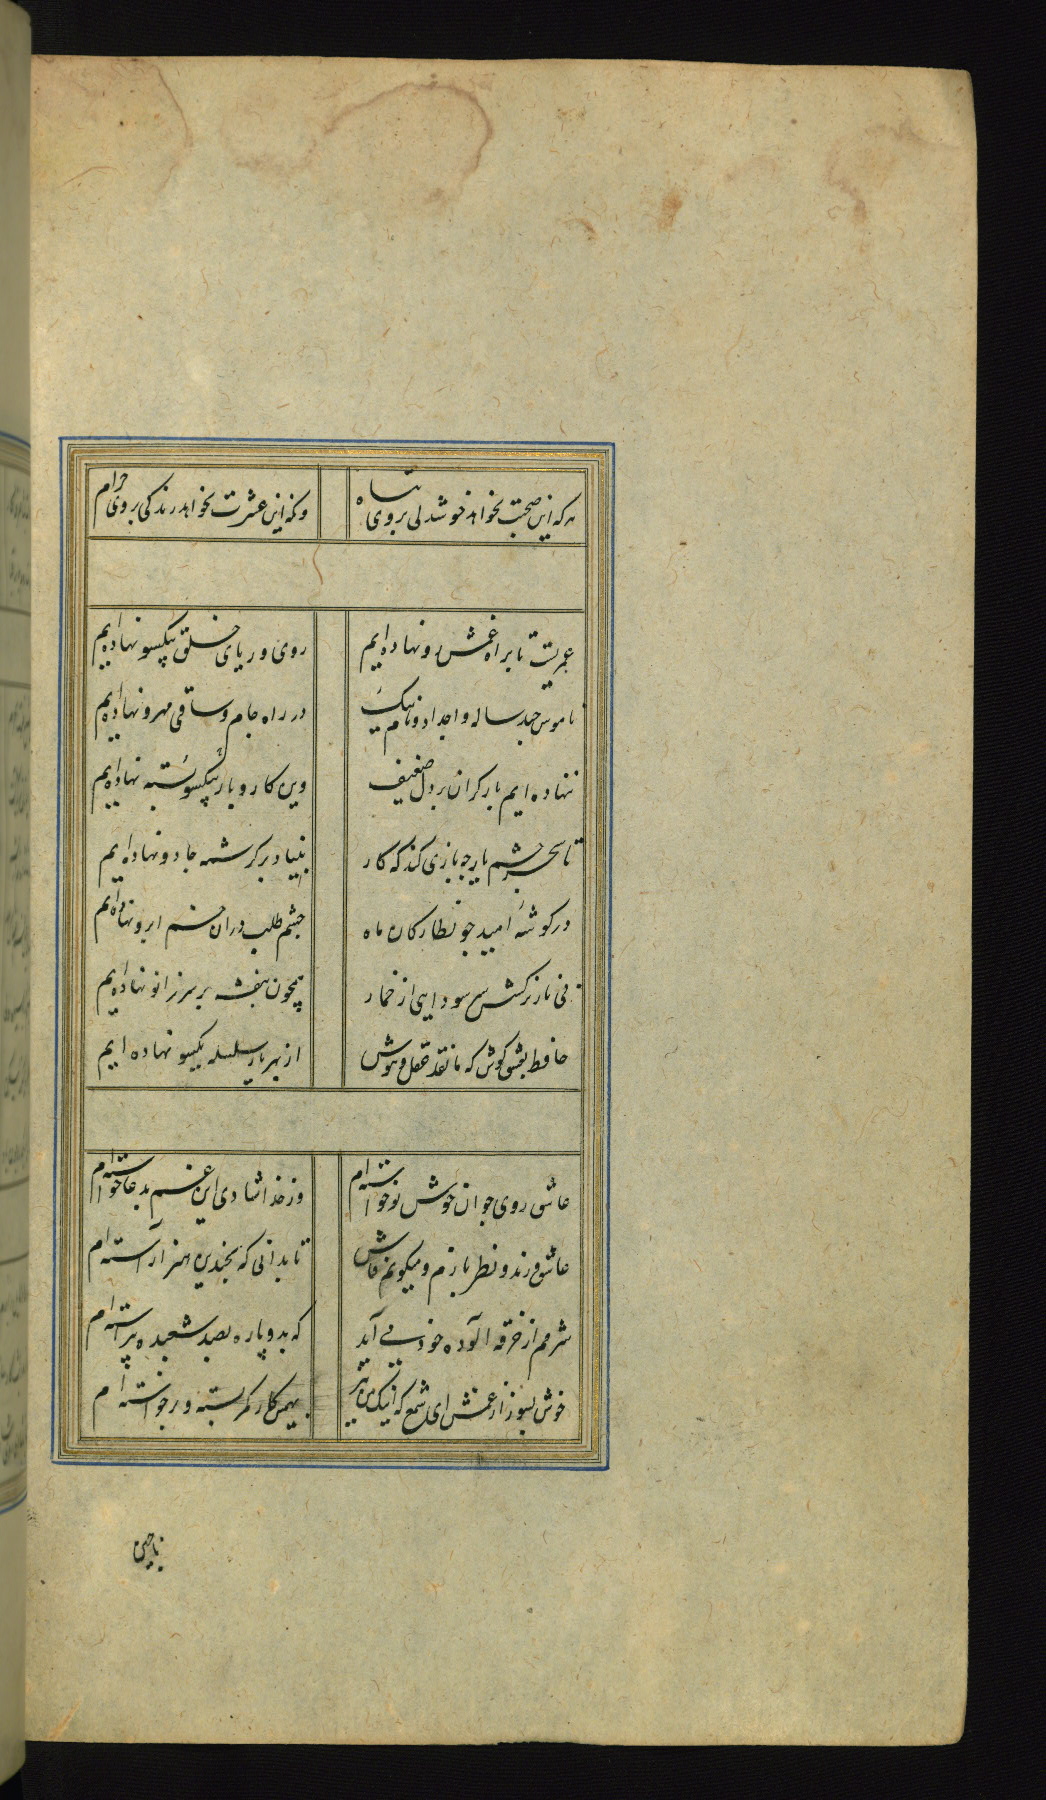 هرکه این صحبت نخواهد خوشدلی بروی تباه
وانکه این عشرت نخواهد زندکی بروی حرام
عمریست تا براه غمش رو نهاده ایم
روی و ریای خلق بیکسو نهاده ایم
ناموس چند ساله و اجداد و نام نیک
در راه جام و ساقی مهرو نهاده ایم
ننهاده ایم بار کران بر دل ضعیف
وین کار و بار بیکسو بسته نهاده ایم
تا سحر چشم یار چه بازی کند که کار
بنیاد بر کرشمه جادو نهاده ایم
در کوشه امید چو نظارکان ماه
چشم طلب دران خم ابرو نهاده ایم
بی ناز نرکسش سر سودایی از خمار
همچون بنفشه بر سر زانو نهاده ایم
حافظ بعیش کوش که ما نقد عقل و هوش
از بهر یار سلسله کیسو نهاده ایم
عاشق روی جوان خوش نوخواسته ام
وز خدا شادی این غم بدعا خواسته ام
عاشق و رند و نظر بازم و میکویم فاش
تا بدانی که بچندین هنر آراسته ام
شرمم از خرقه آلوده خود می آید
که بدو پاره بصد شعبده پیراسته ام
خوش بسوز از غمش ای شمع که اینک من نیز
بهمین کار کمربسته و برخواسته ام